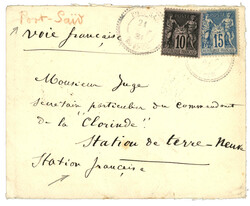 Port-Saïd
voie française
10
15
Monsieur Juge
secrétaire particulier du commandant
de la "Clorinde"
Station de terre-Neuve
Station française